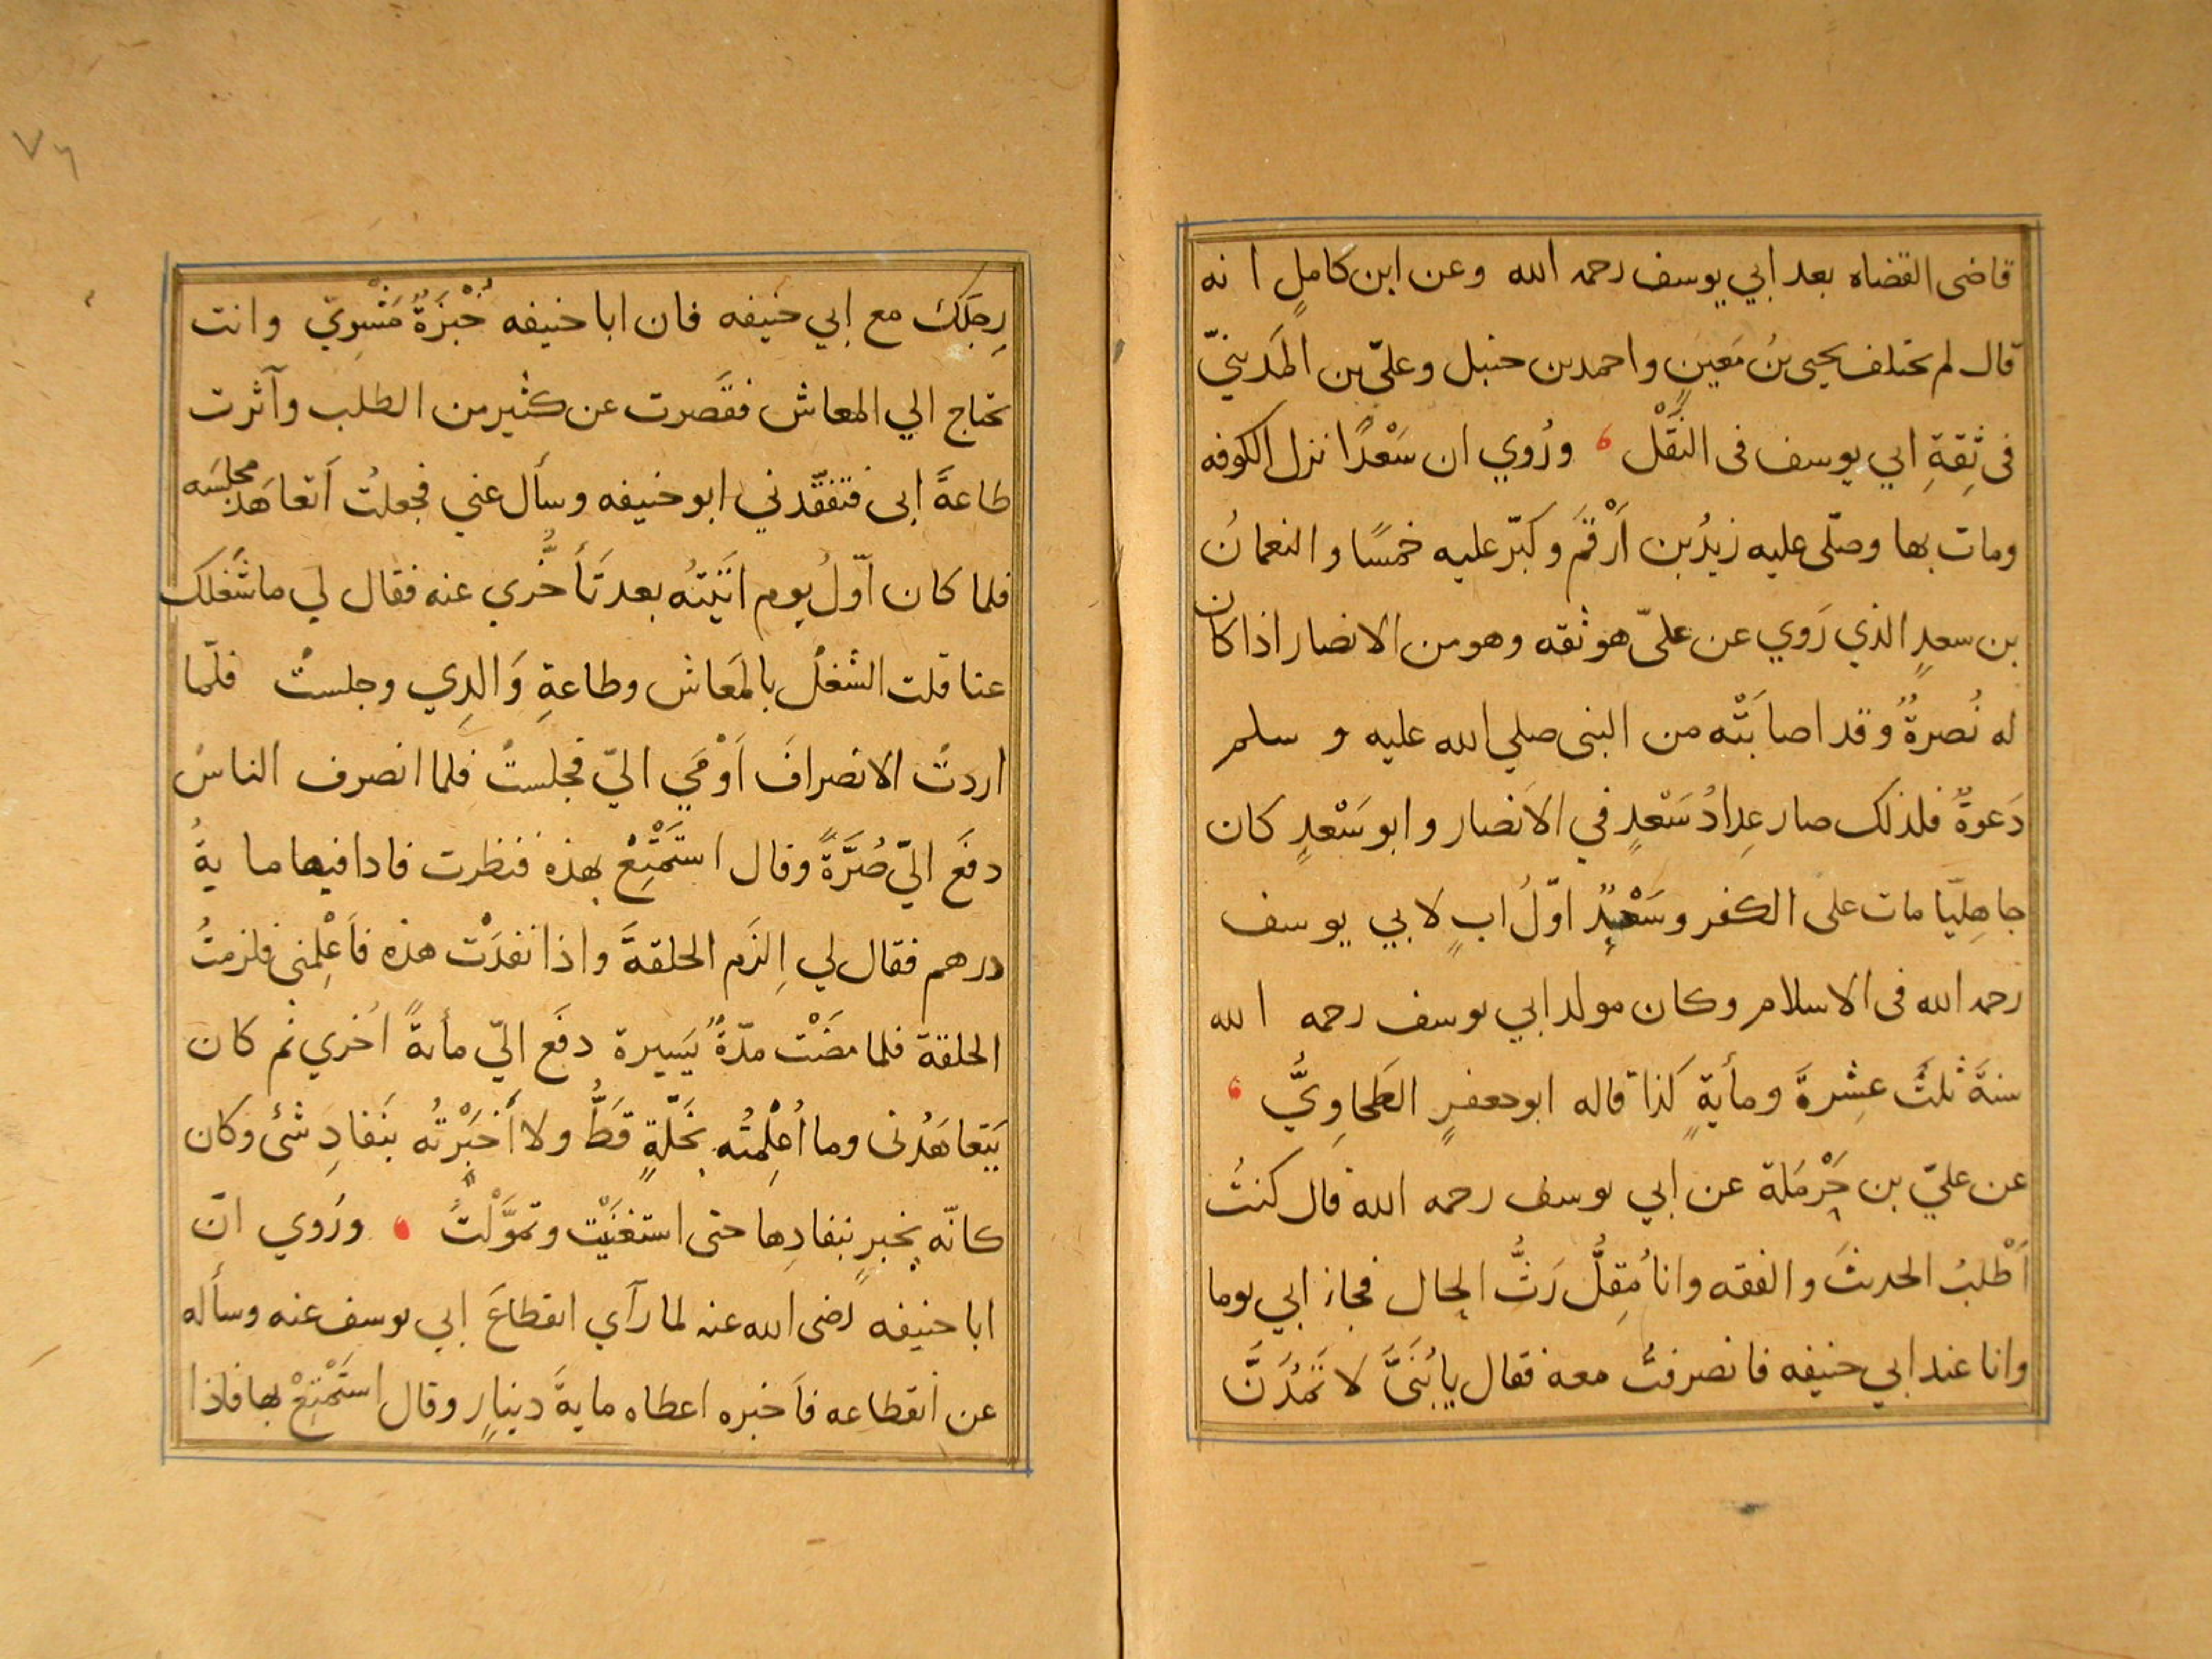 قاضى القضاه بعد ابي يوسف رحمه الله وعن ابن كاملٍ انه
قال لم يختلف يحيى بنُ مَعينٍ واحمد بن حنبل وعليّ بن المَدينيّ
فى ثِقةِ ابي يوسف فى النَّقْل ، ورُوي ان سَعْدًا نزل الكوفه
ومات بها وصلّى عليه زيدُ بن اَرْقَمَ وكبّر عليه خمسًا والنعمانُ
بن سعدٍ الذي رَوي عن علىّ هو ثقه وهو من الانصار اذا كان
له نُصرةٌ وقد اصابَتْه من النبى صلي الله عليه و سلم
دَعوةٌ فلذلك صار عِدادُ سَعْدٍ في الاَنصار وابو سَعْدٍ كان
جاهِليّا مات على الكفر وسَعْدٌ اوّلُ ابٍ لابي يوسف
رحمه الله فى الاسلام وكان مولد ابي يوسف رحمه الله
سنةَ ثلثَ عشِرةَ ومأيةٍ كذا قاله ابو جعفرٍ الطَحاوِيُّ ،
عن عليّ بن حَرْمَلة عن ابي يوسف رحمه الله قال كنتُ
اَطْلبُ الحديثَ والفقه وانا مُقِلٌّ رَثُّ الحال فجاز ابي يوما
وانا عند ابي حنيفه فانصرفتُ معه فقال يا بُنَيَّ لا تَمُدَنَّ
رِجلَكَ مع ابي حنيفه فان ابا حنيفه خُبْزَةٌ مَشْويّ وانت
تحتاج الي المعاش فقَصرت عن كثير من الطلب وآثرت
طاعةَ ابى فتفقّدني ابو حنيفه وسأل عني فجعلتُ اَتعاهَد مجلسَه
فلما كان اوّلُ يوم اتَيْتُه بعد تَأَخُّري عنه فقال لي ما شَغلك
عنا قلت الشغلُ بالمَعاش وطاعةِ وَالدِي وجلستُ فلمّا
اردتُ الانصرافَ اَوْمَي اليّ فجلستُ فلما انصرف الناسُ
دفَع اليّ صُرَّةً وقال استَمْتِعْ بهذه فنظرت فاذا فيها مايةُ
درهم فقال لي اِلزَم الحلقةَ واذا نفدَتْ هذه فاَعْلِمْني فلزمتُ
الحلقة فلما مضَتْ مدّةٌ يَسيرة دفَع اليّ مأىةً اُخري ثم كان
يَتعاهَدُنى وما اُعْلِمْتُه بخَلّةٍ قَطُّ ولا أخبَرْتُه بنَفادِ شئ وكان
كانّه يخبر بنفادِها حتى استغنَيْت وتموَّلْتُ ، ورُوي انّ
ابا حنيفه رضى الله عنه لما رآي انقطاعَ ابي يوسف عنه وسأله
عن انقطاعه فاَخبره اعطاه مايةَ دينارٍ وقال استَمْتِعْ بها فاذا
٧٦